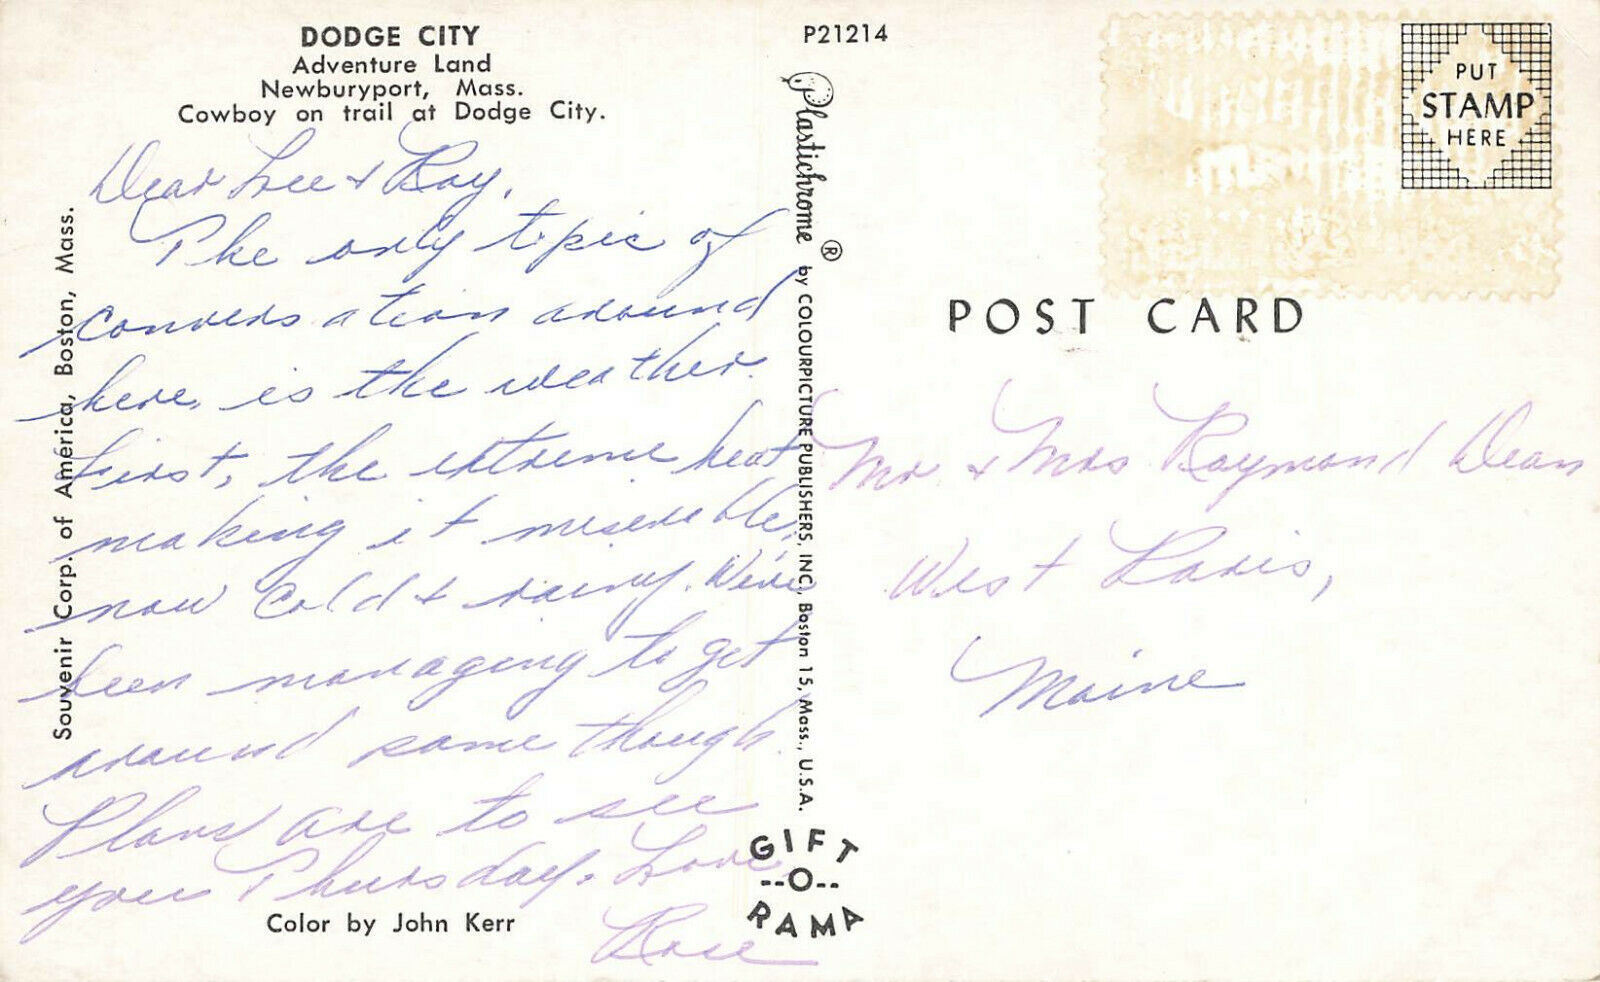 DODGE CITY
Adventure Land
Newburyport, Mass.
Cowboy on trail at Dodge City.
Dear Lee & Ray,
The only topic of
conversation around
here, is the weather.
First, the extreme heat
making it miserable,
now cold & rainy. We've
been managing to get
around some though.
Plans are to see
you Thursday. Love,
Rose
Color by John Kerr
Souvenir Corp. of America, Boston, Mass.
P21214
Plastichrome ® by COLOURPICTURE PUBLISHERS, INC., Boston 15, Mass., U.S.A.
GIFT
--O--
RAMA
PUT
STAMP
HERE
POST CARD
Mr. & Mrs Raymond Dean
West Paris,
Maine